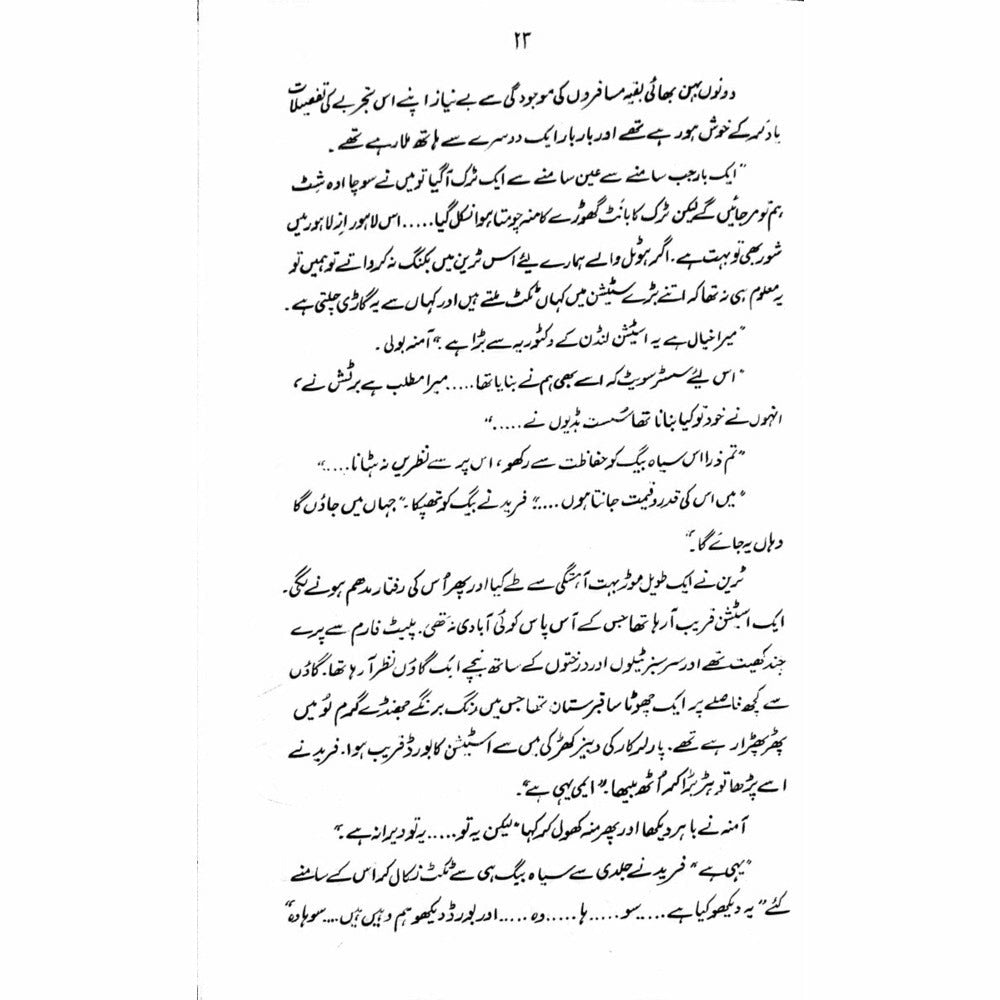 ۲۳
دونوں بہن بھائی بقیہ مسافروں کی موجودگی سے بے نیاز اپنے اس تجربے کی تفصیلات
یاد کر کے خوش ہو رہے تھے اور بار بار ایک دوسرے سے ہاتھ ملا رہے تھے۔
"ایک بار جب سامنے سے عین سامنے سے ایک ٹرک آ گیا تو میں نے سوچا اوہ شِٹ
ہم تو مر جائیں گے لیکن ٹرک کا بانٹ گھوڑے کا منہ چومتا ہوا نکل گیا..... اس لاہور از لاہور میں
شور بھی تو بہت ہے۔ اگر ہوٹل والے ہمارے لیئے اس ٹرین میں بکنگ نہ کرواتے تو ہمیں تو
یہ معلوم ہی نہ تھا کہ اتنے بڑے سٹیشن میں کہاں ٹکٹ ملتے ہیں اور کہاں سے یہ گاڑی چلتی ہے۔
"میرا خیال ہے یہ اسٹیشن لنڈن کے وکٹوریہ سے بڑا ہے" آمنہ بولی۔
"اس لیئے سسٹر سویٹ کہ اسے بھی ہم نے بنایا تھا..... میرا مطلب ہے برٹش نے،
انہوں نے خود تو کیا بنانا تھا سُست ہڈیوں نے....."
"تم ذرا اس سیاہ بیگ کو حفاظت سے رکھو، اس پر سے نظریں نہ ہٹانا....."
"میں اس کی قدر و قیمت جانتا ہوں....." فرید نے بیگ کو تھپکا۔ "جہاں میں جاؤں گا
وہاں یہ جائے گا۔"
ٹرین نے ایک طویل موڑ بہت آہستگی سے طے کیا اور پھر اُس کی رفتار مدھم ہونے لگی۔
ایک اسٹیشن قریب آ رہا تھا جس کے آس پاس کوئی آبادی نہ تھی۔ پلیٹ فارم سے پرے
چند کھیت تھے اور سرسبز ٹیلوں اور درختوں کے ساتھ نیچے ایک گاؤں نظر آ رہا تھا۔ گاؤں
سے کچھ فاصلے پر ایک چھوٹا سا قبرستان تھا جس میں رنگ برنگے جھنڈے گرم لُو میں
پھڑپھڑا رہے تھے۔ پارلر کار کی دبیز کھڑکی میں سے اسٹیشن کا بورڈ قریب ہوا۔ فرید نے
اسے پڑھا تو ہڑبڑا کر اُٹھ بیٹھا۔ "ایمی یہی ہے"۔
آمنہ نے باہر دیکھا اور پھر منہ کھول کر کہا "لیکن یہ تو..... یہ تو ویرانہ ہے۔"
"یہی ہے" فرید نے جلدی سے سیاہ بیگ ہی سے ٹکٹ نکال کر اس کے سامنے
کئے "یہ دیکھو کیا ہے..... سو..... ہا..... وہ..... اور بورڈ دیکھو ہم وہیں ہیں.... سوہاوہ"